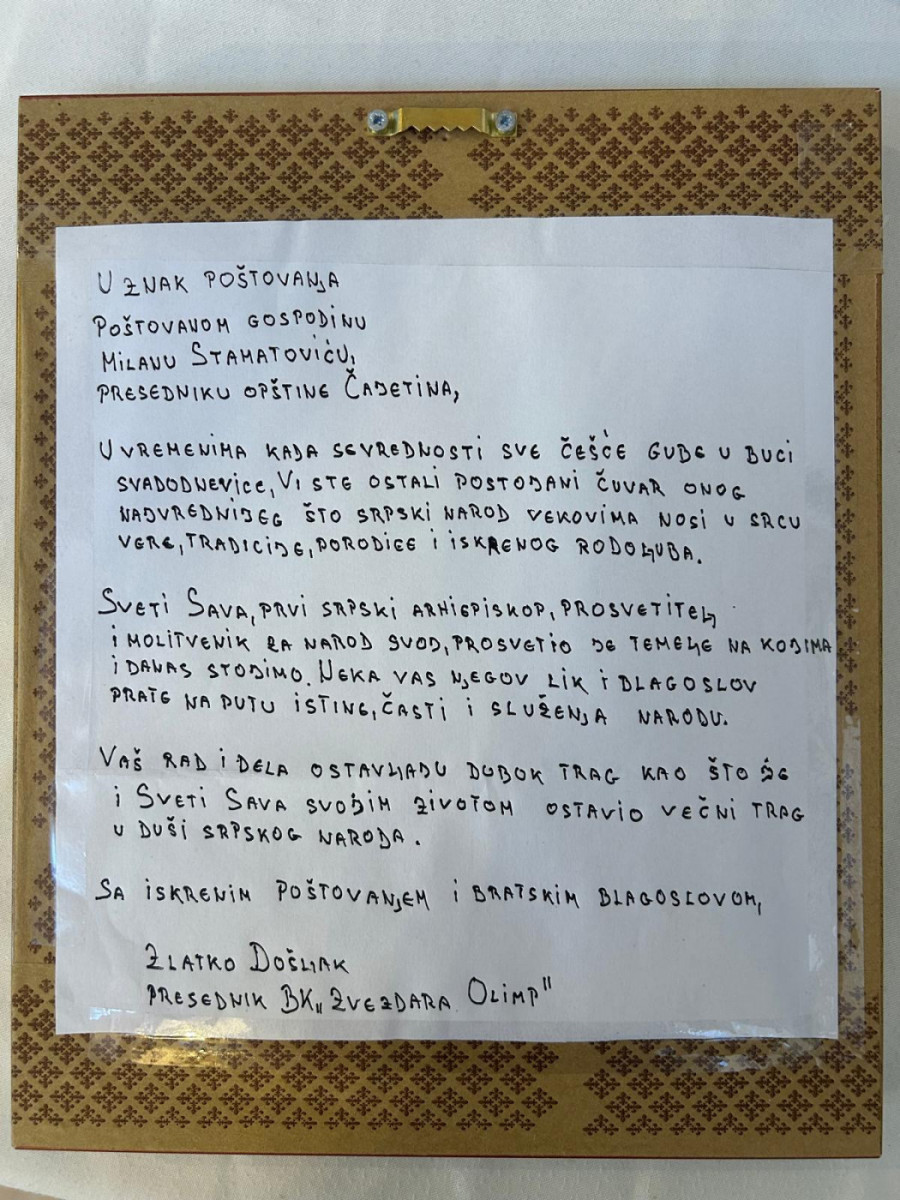 U ZNAK POŠTOVANJA
POŠTOVANOM GOSPODINU
MILANU STAMATOVIĆU,
PRESEDNIKU OPŠTINE ČAJETINA,
U VREMENIMA KADA SE VREDNOSTI SVE ČEŠĆE GUBE U BUCI
SVADODNEVICE, VI STE OSTALI POSTOJANI ČUVAR ONOG
NAJVREDNIJEG ŠTO SRPSKI NAROD VEKOVIMA NOSI U SRCU
VERE, TRADICIJE, PORODICE I ISKRENOG RODOLJUBA.
SVETI SAVA, PRVI SRPSKI ARHIEPISKOP, PROSVETITELJ
I MOLITVENIK ZA NAROD SVOJ, PROSVETIO JE TEMELJE NA KOJIMA
I DANAS STOJIMO. NEKA VAS NJEGOV LIK I BLAGOSLOV
PRATE NA PUTU ISTINE, ČASTI I SLUŽENJA NARODU.
VAŠ RAD I DELA OSTAVLJAJU DUBOK TRAG KAO ŠTO JE
I SVETI SAVA SVOJIM ZIVOTOM OSTAVIO VEČNI TRAG
U DUŠI SRPSKOG NARODA.
SA ISKRENIM POŠTOVANJEM I BRATSKIM BLAGOSLOVOM,
ZLATKO DOŠLJAK
PRESEDNIK BK „ZVEZDARA OLIMP"